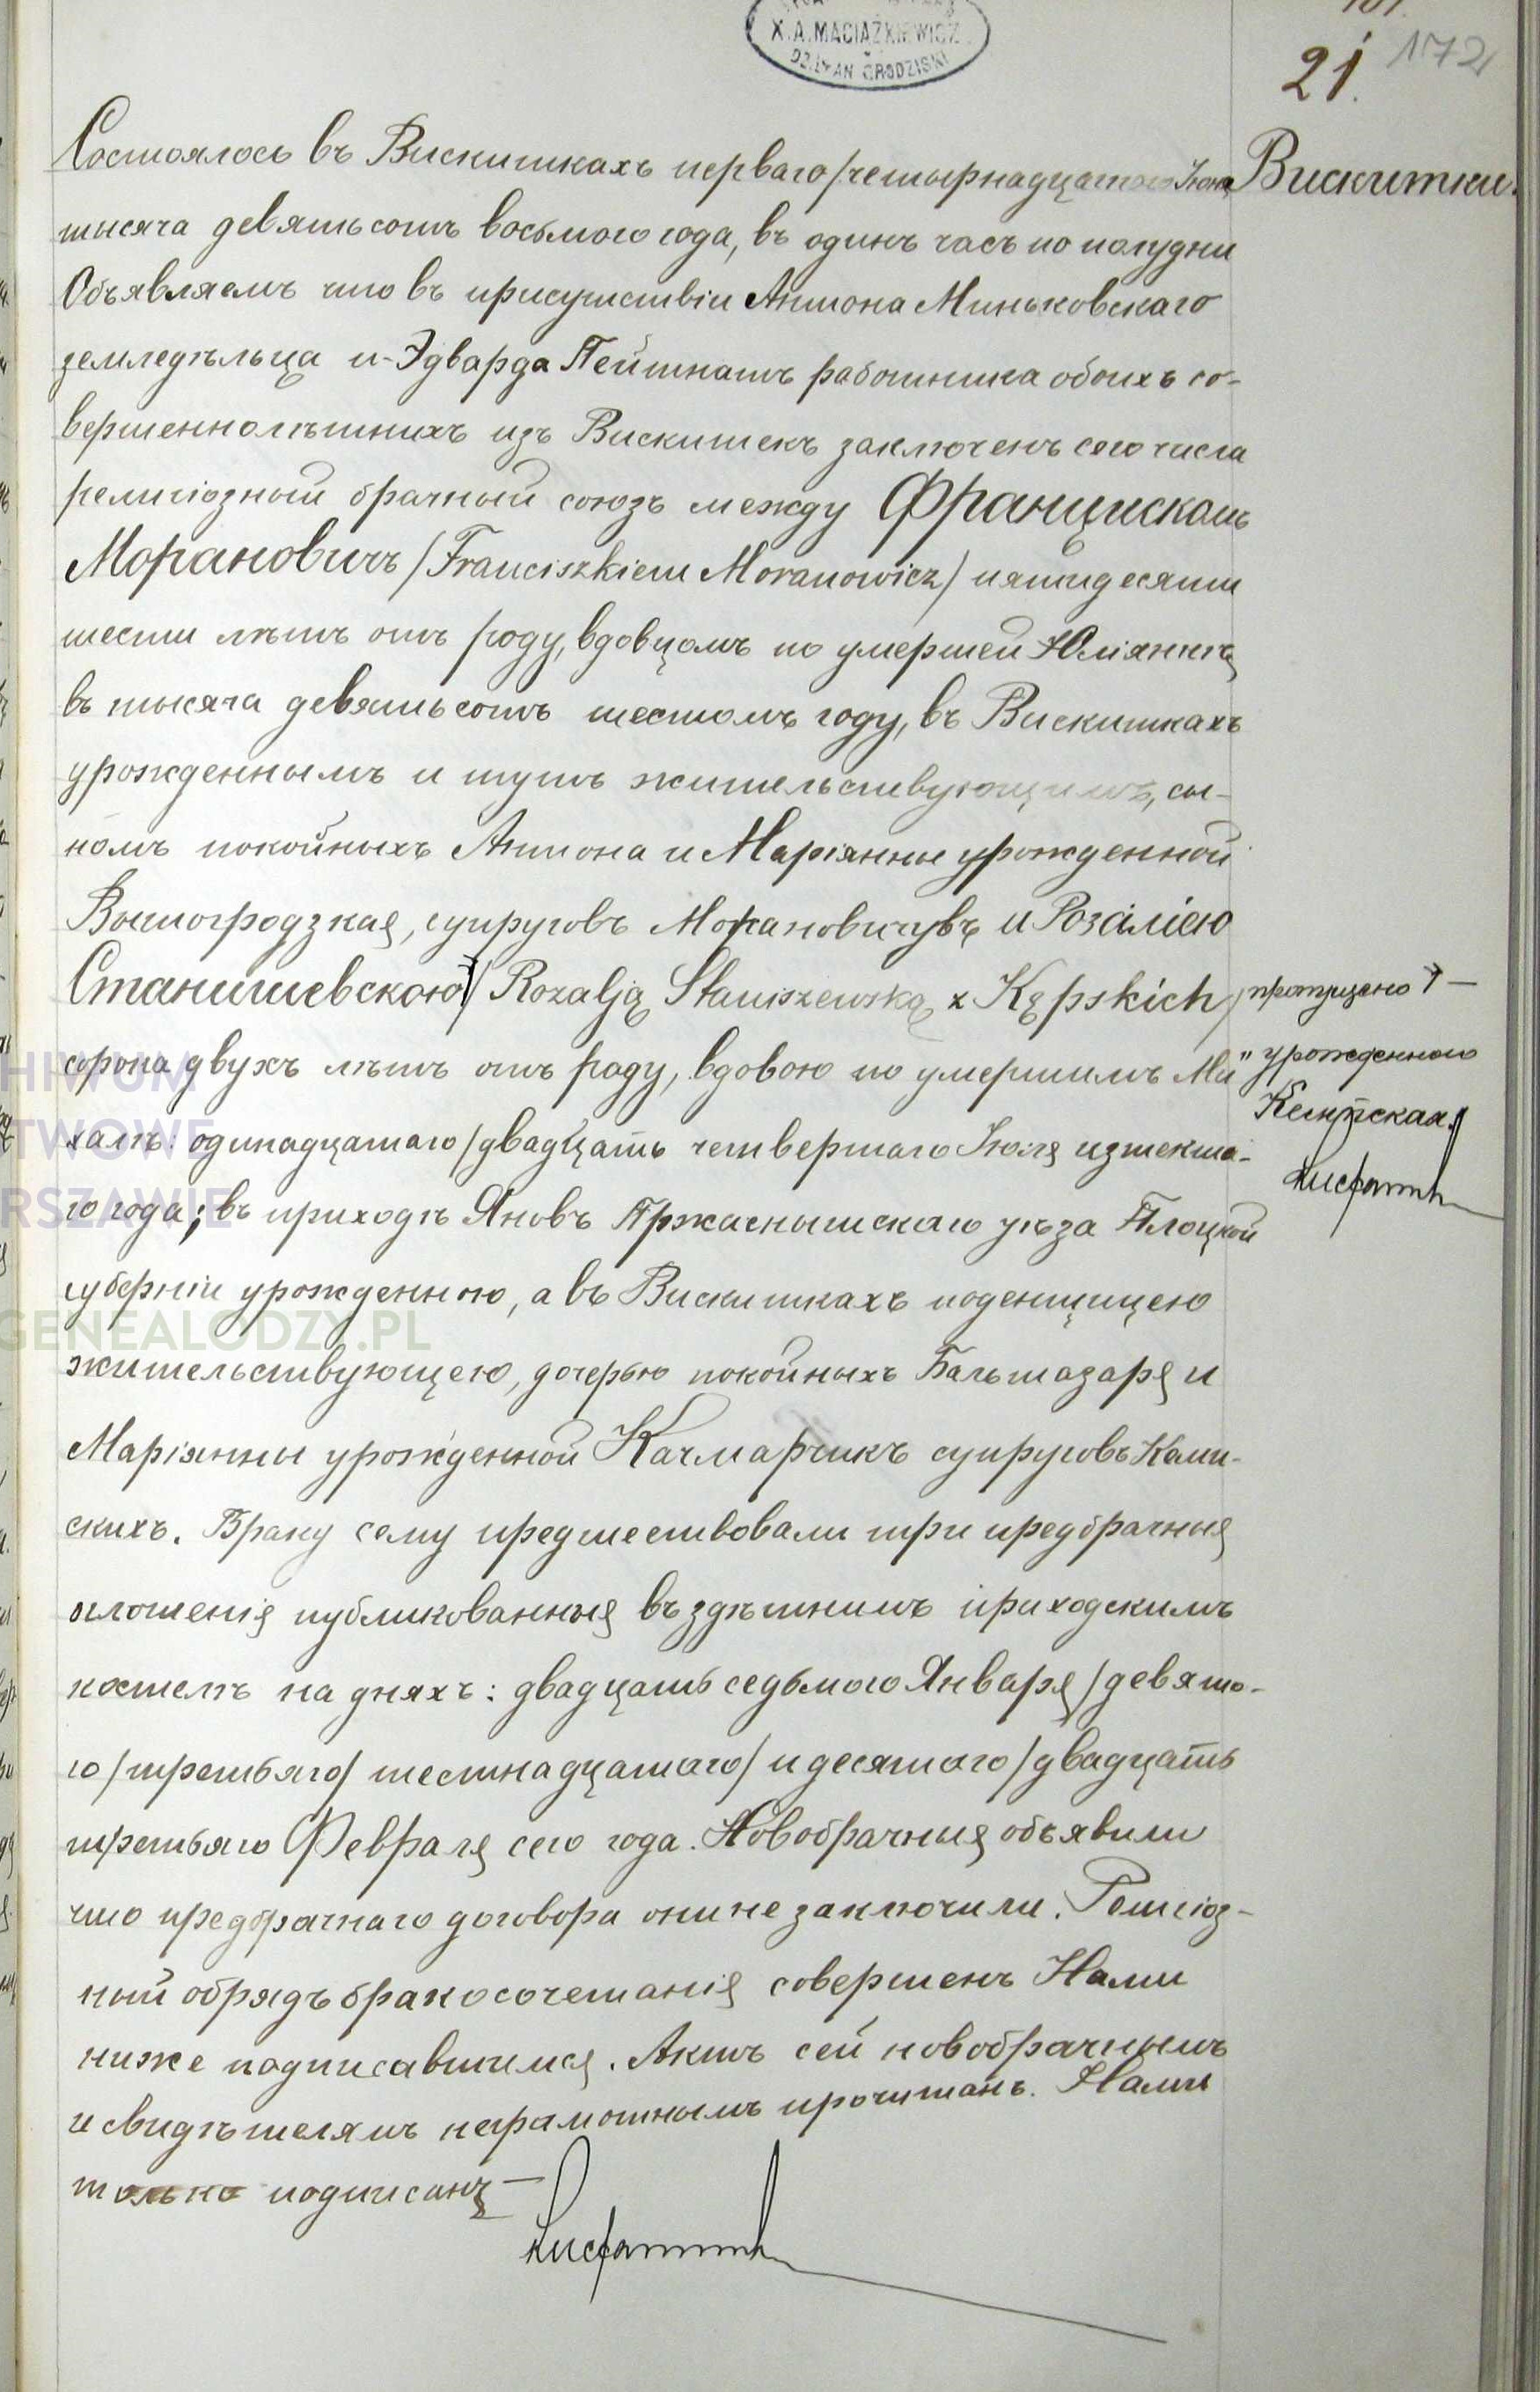 X. A. MACIĄŻKIEWICZ
DZIEKAN GRODZISKI
172
21.
Вискитки.
Состоялось въ Вискиткахъ перваго/четырнадцатаго Іюня
тысяча девятьсотъ восьмого года, въ одинъ часъ по полудни
Объявляемъ что въ присутствіи Антона Миньковскаго
земледѣльца и Эдварда Пейтнатъ работника обоихъ со-
вершеннолѣтнихъ изъ Вискитекъ заключенъ сего числа
религіозный брачный союзъ между Францискомъ
Морановичъ /Franciszkiem Moranowicz/ пятидесяти
шести лѣтъ отъ роду, вдовцомъ по умершей Юліяннѣ
въ тысяча девятьсотъ шестомъ году, въ Вискиткахъ
урожденнымъ и тутъ жительствующимъ, сы-
номъ покойныхъ Антона и Маріянны урожденной
Вышогродзкая, супруговъ Морановичувъ и Розаліею
Станишевскою /Rozalją Staniszewską z Kępskich/
пропущено
сорока двухъ лѣтъ отъ роду, вдовою по умершимъ Ми
"урожденною
Кемпская"
халѣ: одинадцатаго/двадцать четвертаго Іюля изтекша-
го года; въ приходѣ Яновъ Пржаснышскаго уѣза Плоцкой
губерніи урожденною, а въ Вискиткахъ поденщицею
жительствующею, дочерью покойныхъ Бальтазаря и
Маріянны урожденной Качмарчикъ супруговъ Кемп-
скихъ. Браку сему предшествовали три предбрачныя
оглошенія публикованныя въ здѣшнимъ приходскимъ
костелѣ на дняхъ: двадцать седьмого Января/девято-
го/третьяго/шестнадцатаго/и десятаго/двадцать
третьяго Февраля сего года. Новобрачныя объявили
что предбрачнаго договора они не заключили. Религіоз-
ный обрядъ бракосочетанія совершенъ Нами
ниже подписавшимся. Актъ сей новобрачнымъ
и свидѣтелямъ неграмотнымъ прочитанъ. Нами
только подписанъ
GENEALODZY.PL